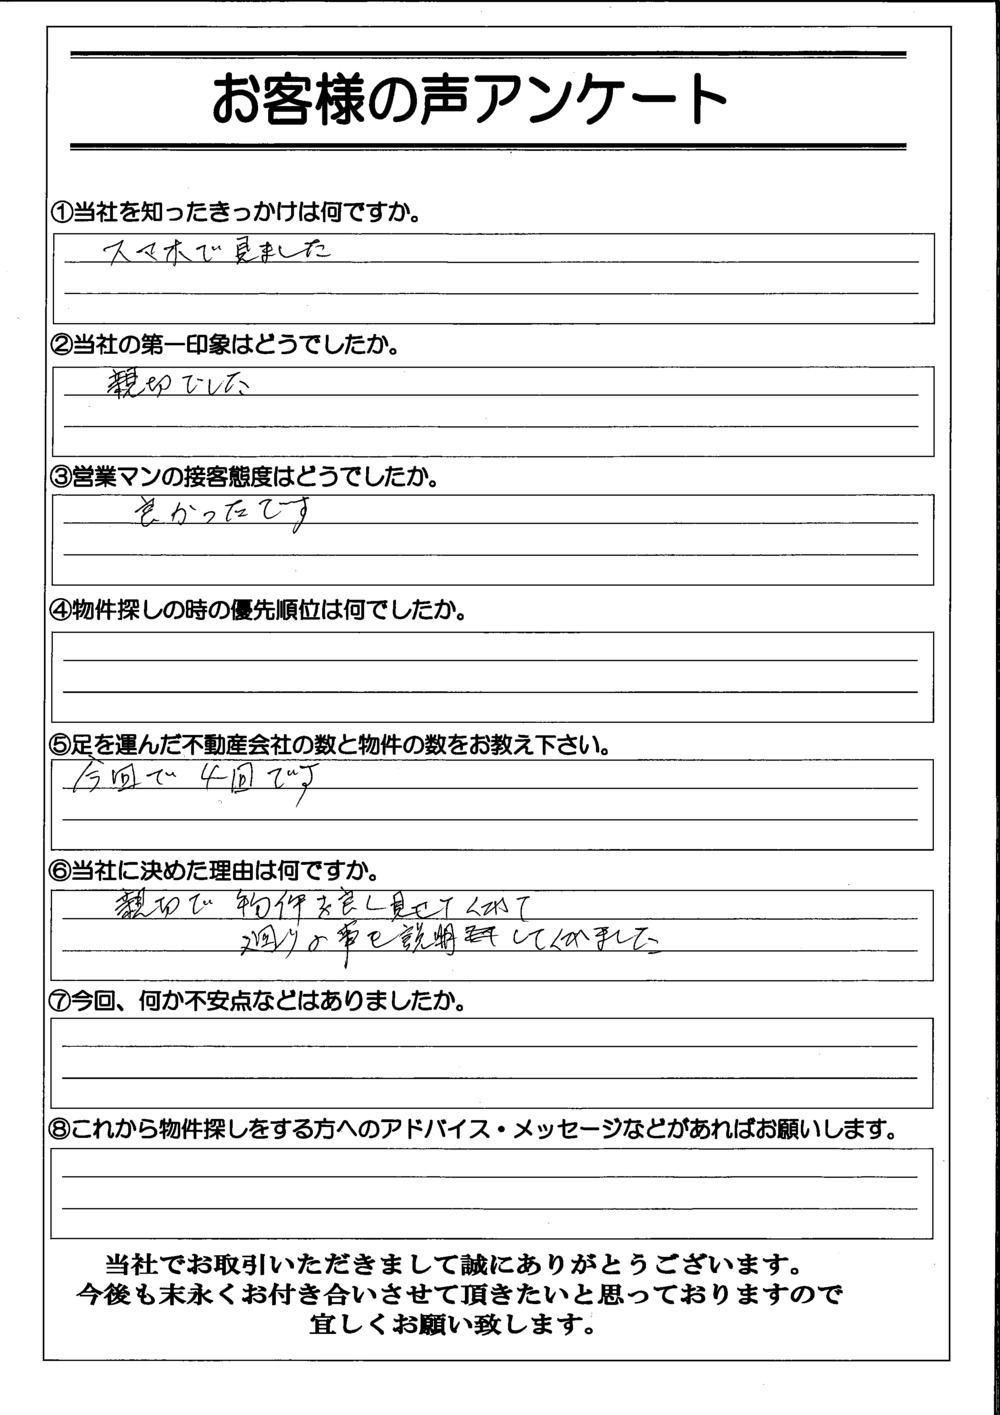 お客様の声アンケート
①当社を知ったきっかけは何ですか。
スマホで見ました
②当社の第一印象はどうでしたか。
親切でした
③営業マンの接客態度はどうでしたか。
良かったです
④物件探しの時の優先順位は何でしたか。
⑤足を運んだ不動産会社の数と物件の数をお教え下さい。
今回で4回です
⑥当社に決めた理由は何ですか。
親切で物件を良く見せてくれて
廻りの事も説明してくれました
⑦今回、何か不安点などはありましたか。
⑧これから物件探しをする方へのアドバイス・メッセージなどがあればお願いします。
当社でお取引いただきまして誠にありがとうございます。
今後も末永くお付き合いさせて頂きたいと思っておりますので
宜しくお願い致します。